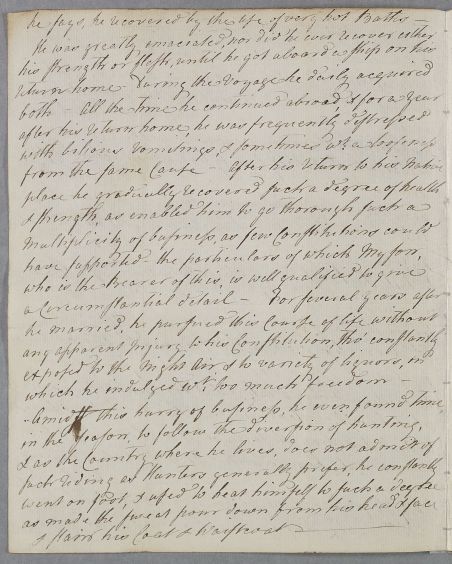 he says, he recovered by the use of very hot Baths –
He was greatly emaciated, nor did he ever recover either
his strength or flesh, until he got aboard a ship on his
return home. During the Voyage he daily acquired
both – All the time he continued abroad & for a year
after his return home, he was frequently distressed
with bilious vomitings, & sometimes wt. a looseness
from the same Cause – After his return to his Native
place he gradually recovered such a degree of health
& strength, as enabled him to go thorough such a
multiplicity of business, as few Constitutions could
have supported – the particulars of which My son,
who is the bearer of this, is well qualified to give
a Circumstantial detail – For several years after
he married, he pursued this Course of life without
any apparent Injury to his Constitution, tho' constantly
exposed to the Night Air, & to variety of liquors, in
which he indulged wt. too much freedom –
– Amidst this hurry of business, he even found time,
in the season, to follow the diversion of hunting,
& as the Country where he lives, does not admit of
such riding as Hunters generally prefer, he constantly
went on foot, & used to heat himself to such a degree
as made the sweat pour down from his head & face
& stain his Coat & Waistcoat